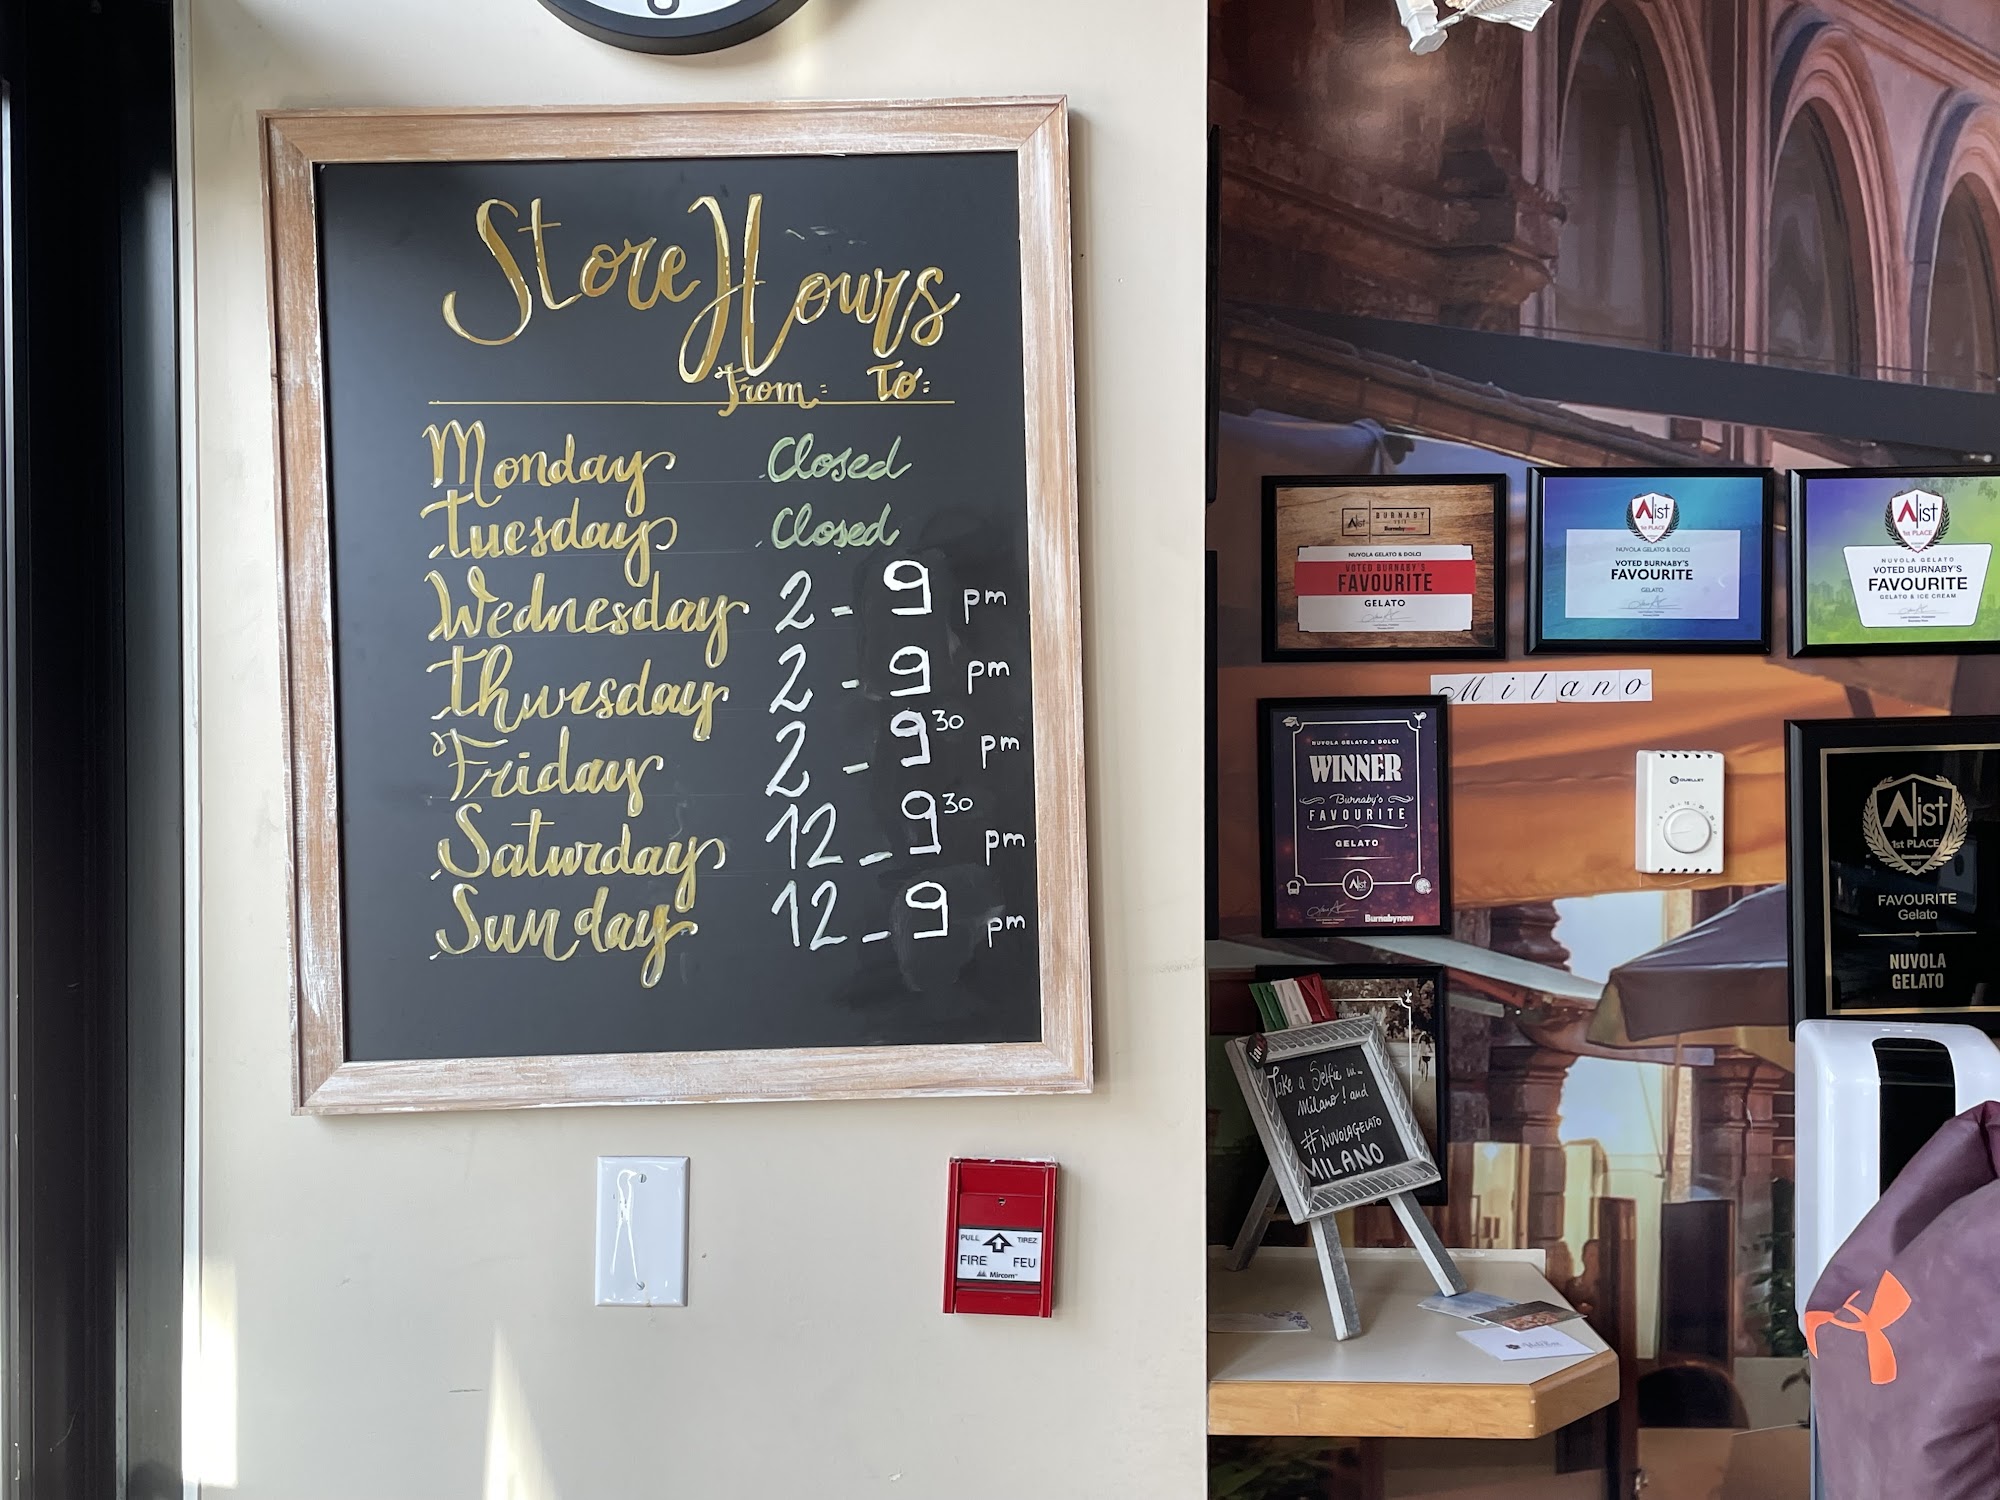 Store Hours
From: To:
Monday Closed
Tuesday Closed
Wednesday 2 - 9 pm
Thursday 2 - 9 pm
Friday 2 - 9 30 pm
Saturday 12 - 9 30 pm
Sunday 12 - 9 pm
PULL TIREZ
FIRE FEU
Mircom
Alist BURNABY
Burnabynow
NUVOLA GELATO & DOLCI
VOTED BURNABY'S
FAVOURITE
GELATO
Alist
1st PLACE
NUVOLA GELATO & DOLCI
VOTED BURNABY'S
FAVOURITE
GELATO
Alist
1st PLACE
NUVOLA GELATO
VOTED BURNABY'S
FAVOURITE
GELATO & ICE CREAM
Milano
NUVOLA GELATO & DOLCI
WINNER
Burnaby's
FAVOURITE
GELATO
Alist
Burnabynow
OUELLET
Alist
1st PLACE
Burnabynow
FAVOURITE
Gelato
NUVOLA
GELATO
ITALY
Take a Selfie in...
Milano! and
#NUVOLAGELATO
MILANO